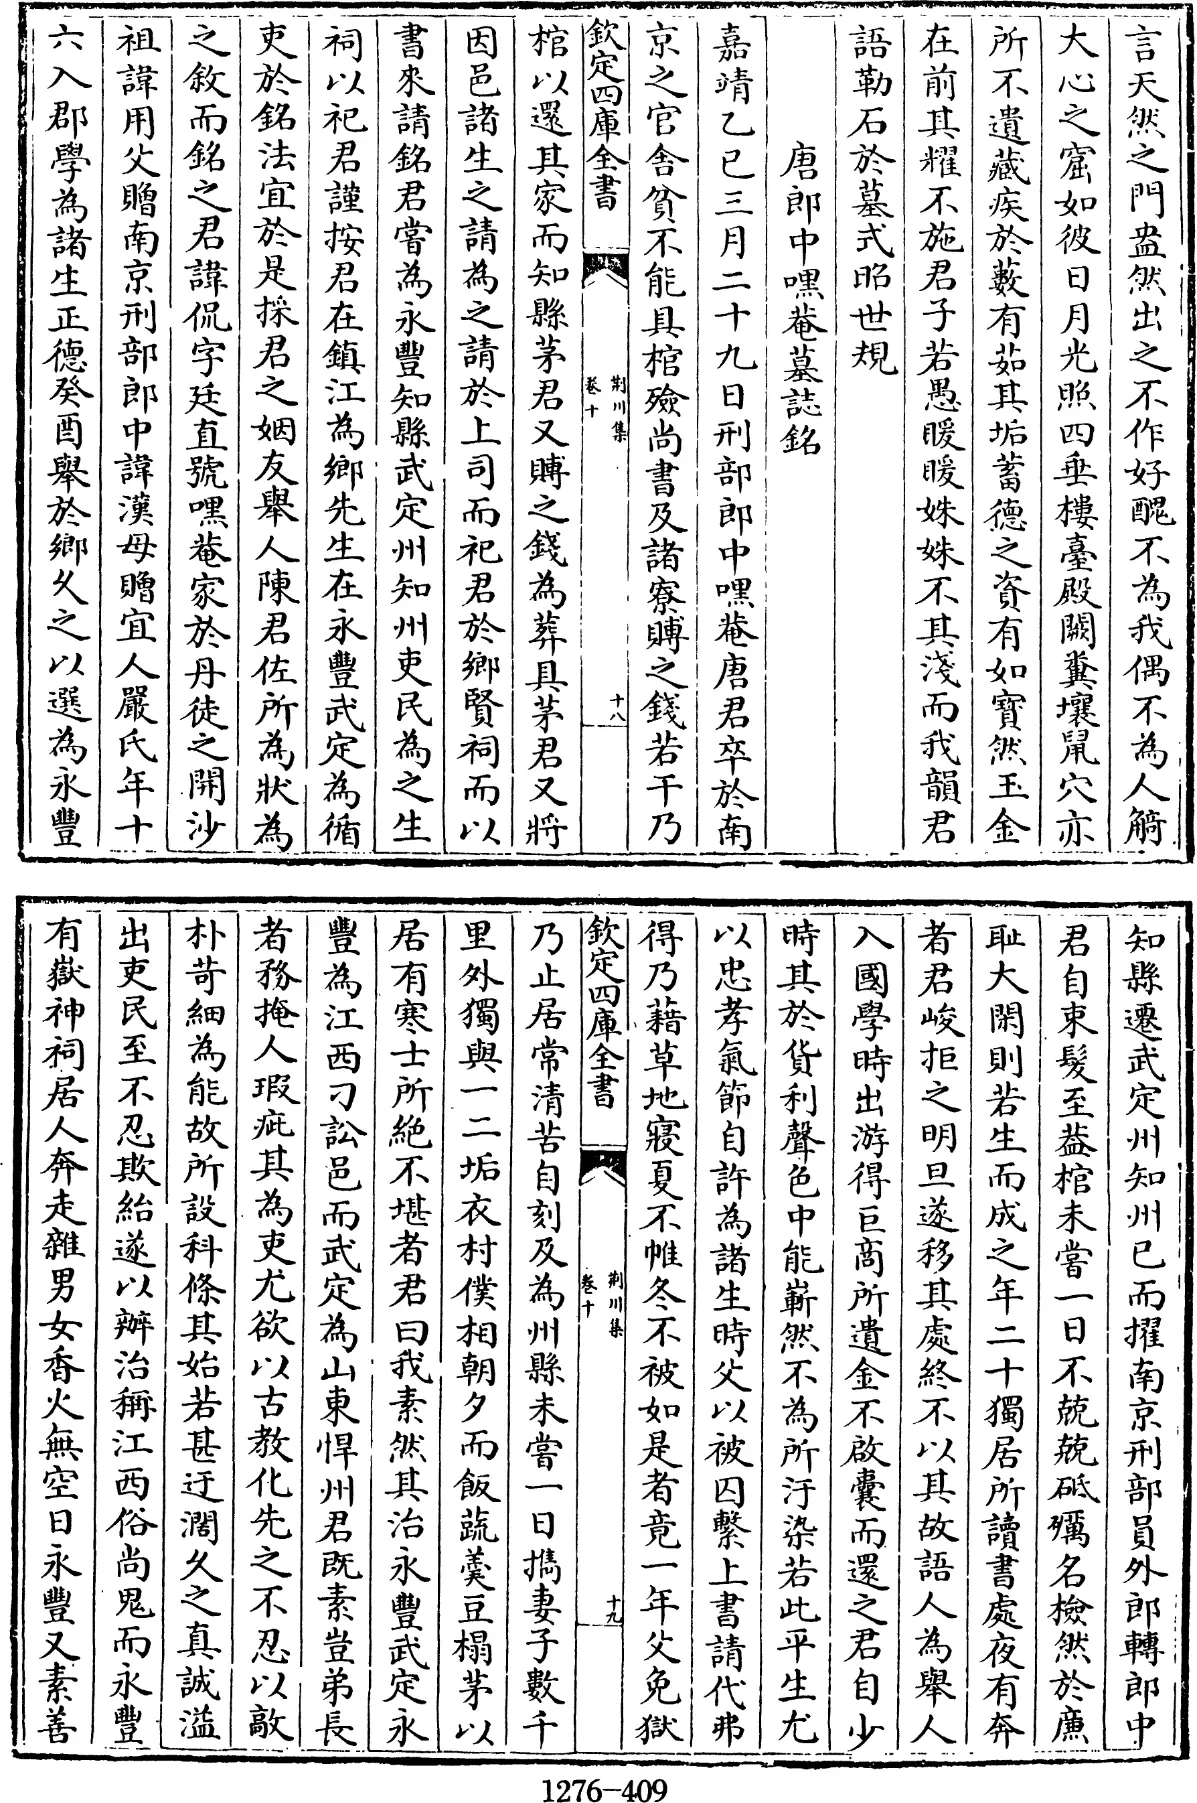 言天然之門盎然出之不作好醜不為我偶不為人觭
大心之窟如彼日月光照四垂樓臺殿闕糞壤鼠穴亦
所不遺藏疾於藪有茹其垢蓄德之資有如寳然玉金
在前其耀不施君子若愚暖暖姝姝不其淺而我韻君
語勒石於墓式昭世規
唐郎中嘿菴墓誌銘
嘉靖乙巳三月二十九日刑部郎中嘿菴唐君卒於南
京之官舍貧不能具棺殮尚書及諸寮賻之錢若干乃
欽定四庫全書
荆川集
卷十
十八
棺以還其家而知縣茅君又賻之錢為葬具茅君又將
因邑諸生之請為之請於上司而祀君於鄉賢祠而以
書來請銘君嘗為永豐知縣武定州知州吏民為之生
祠以祀君謹按君在鎮江為鄉先生在永豐武定為循
吏於銘法宜於是採君之姻友舉人陳君佐所為狀為
之敘而銘之君諱侃字廷直號嘿菴家於丹徒之開沙
祖諱用父贈南京刑部郎中諱漢母贈宜人嚴氏年十
六入郡學為諸生正德癸酉舉於鄉久之以選為永豐
知縣遷武定州知州已而擢南京刑部員外郎轉郎中
君自束髮至葢棺未嘗一日不兢兢砥礪名檢然於廉
耻大閑則若生而成之年二十獨居所讀書處夜有奔
者君峻拒之明旦遂移其處終不以其故語人為舉人
入國學時出游得巨商所遺金不啟囊而還之君自少
時其於貨利聲色中能嶄然不為所汙染若此平生尤
以忠孝氣節自許為諸生時父以被囚繫上書請代弗
得乃藉草地寢夏不帷冬不被如是者竟一年父免獄
欽定四庫全書
荆川集
卷十
十九
乃止居常清苦自刻及為州縣未嘗一日擕妻子數千
里外獨與一二垢衣村僕相朝夕而飯蔬羮豆榻茅以
居有寒士所絶不堪者君曰我素然其治永豐武定永
豐為江西刁訟邑而武定為山東悍州君既素豈弟長
者務掩人瑕疵其為吏尤欲以古教化先之不忍以敲
朴苛細為能故所設科條其始若甚迂濶久之真誠溢
出吏民至不忍欺紿遂以辦治稱江西俗尚鬼而永豐
有獄神祠居人奔走雜男女香火無空日永豐又素善
1276-409